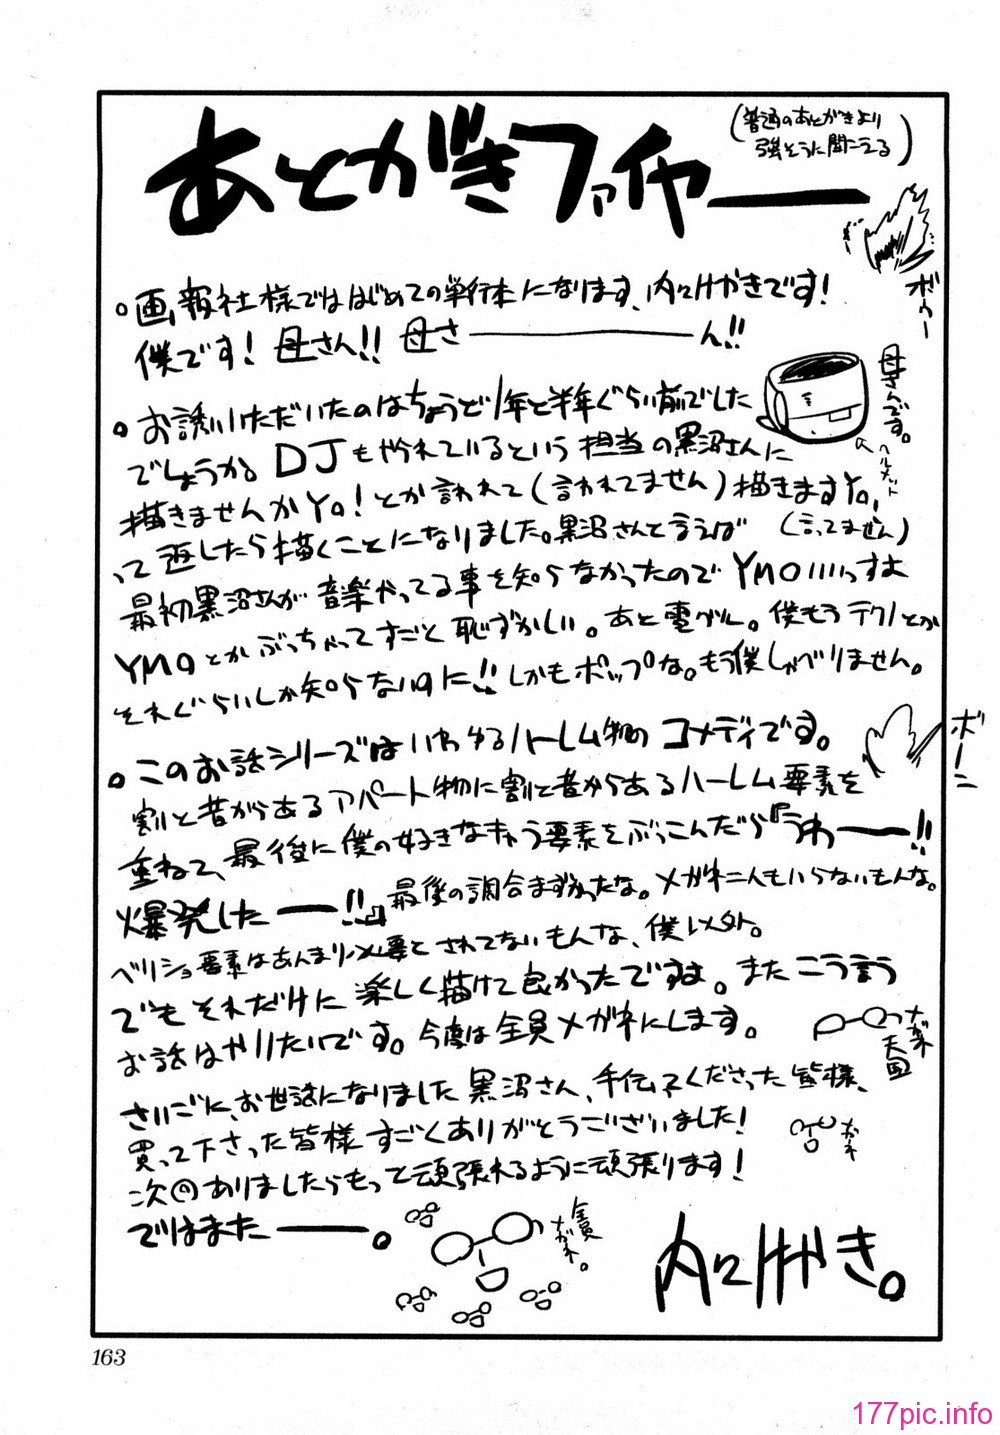 あとがきファイヤー
(普通のあとがきより
強そうに聞こえる)
ボゥー
。画報社様でははじめての単行本になります、内々けやきです!
僕です! 母さん!! 母さ――――ん!!
母さんです。
ヘルメット
。お誘いいただいたのはちょうど1年と半年ぐらい前でした
でしょうか。DJもやられているという担当の黒沼さんに
描きませんかYo!とか言われて(言われてません)描きますYo,
って返したら描くことになりました。黒沼さんと言えば (言ってません)
最初黒沼さんが音楽やってる事を知らなかったのでYMOいいっすよ
YMOとかぶっちゃってすごと恥ずかしい。あと電グル。僕もうテクノとか
それぐらいしか知らないのに!!しかもポップな。もう僕しゃべりません。
ボーン
。このお話シリーズはいわゆるハーレム物のコメディです。
割と昔からあるアパート物に割と昔からあるハーレム要素を
重ねて、最後に僕の好きなキャラ要素をぶっこんだら『うわーー!!
爆発したーー!!』最後の調合まずかったな。メガネ二人もいらないもんな。
ベリショ要素はあんまり必要とされてないもんな、僕以外。
でもそれだけに楽しく描けて良かったですね。またこう言う
お話はやりたいです。今度は全員メガネにします。
メガネ天国
さいごに、お世話になりました黒沼さん、手伝ってくださった皆様、
買って下さった皆様すごくありがとうございました!
次回ありましたらもっと頑張れるように頑張ります!
ではまたーー。
全員
メガネ。
内々けやき。
163
177pic.info